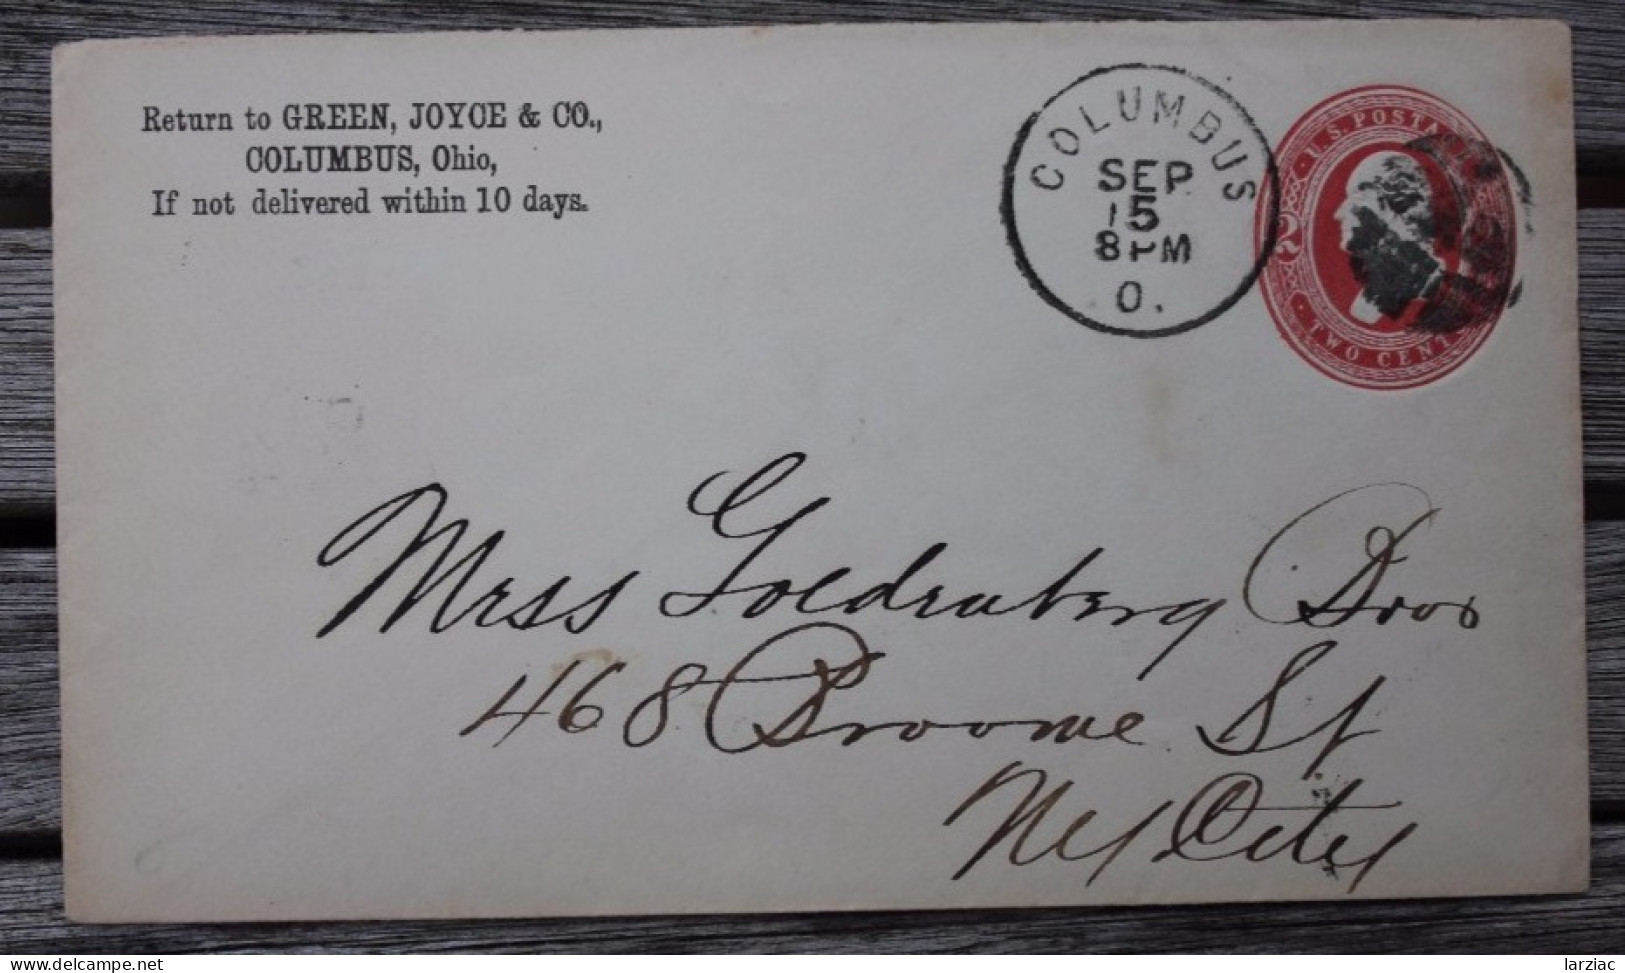 Return to GREEN, JOYCE & CO.,
COLUMBUS, Ohio,
If not delivered within 10 days.
COLUMBUS
SEP
15
8PM
O.
U.S. POSTA
2
TWO CENT
Mrss Goldenberg Bros
468 Broome St
NY City
delcampe.net
larziac